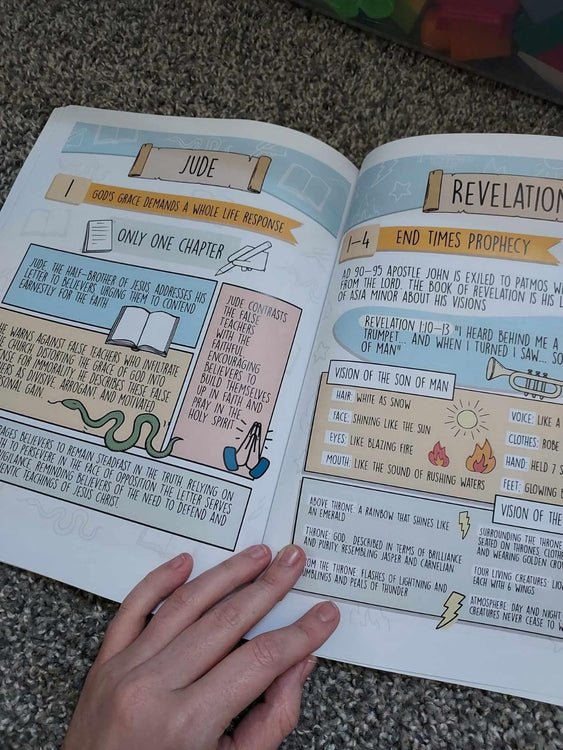 JUDE
1
GOD'S GRACE DEMANDS A WHOLE LIFE RESPONSE
ONLY ONE CHAPTER
JUDE, THE HALF-BROTHER OF JESUS ADDRESSES HIS
LETTER TO BELIEVERS URGING THEM TO CONTEND
EARNESTLY FOR THE FAITH
HE WARNS AGAINST FALSE TEACHERS WHO INFILTRATE
CHURCH DISTORTING THE GRACE OF GOD INTO
FOR IMMORALITY. HE DESCRIBES THESE FALSE
AS DIVISIVE, ARROGANT AND MOTIVATED
GAIN.
JUDE CONTRASTS
THE FALSE
TEACHERS
WITH THE
FAITHFUL,
ENCOURAGING
BELIEVERS TO
BUILD THEMSELVES
UP IN FAITH AND
PRAY IN THE
HOLY SPIRIT
BELIEVERS TO REMAIN STEADFAST IN THE TRUTH, RELYING ON
TO PERSEVERE IN THE FACE OF OPPOSITION. THE LETTER SERVES
VIGILANCE, REMINDING BELIEVERS OF THE NEED TO DEFEND AND
TEACHINGS OF JESUS CHRIST.
REVELATION
1-4
END TIMES PROPHECY
AD 90-95 APOSTLE JOHN IS EXILED TO PATMOS
FROM THE LORD. THE BOOK OF REVELATION IS HIS
OF ASIA MINOR ABOUT HIS VISIONS
REVELATION 1:10-13 "I HEARD BEHIND ME A
TRUMPET... AND WHEN I TURNED I SAW...
OF MAN"
VISION OF THE SON OF MAN
HAIR: WHITE AS SNOW
FACE: SHINING LIKE THE SUN
EYES: LIKE BLAZING FIRE
MOUTH: LIKE THE SOUND OF RUSHING WATERS
VOICE: LIKE A
CLOTHES: ROBE
HAND: HELD 7
FEET: GLOWING
VISION OF THE
ABOVE THRONE: A RAINBOW THAT SHINES LIKE
AN EMERALD
THRONE: GOD, DESCRIBED IN TERMS OF BRILLIANCE
AND PURITY, RESEMBLING JASPER AND CARNELIAN
FROM THE THRONE: FLASHES OF LIGHTNING AND
RUMBLINGS AND PEALS OF THUNDER
SURROUNDING THE THRONE
SEATED ON THRONES,
AND WEARING GOLDEN
FOUR LIVING CREATURES:
EACH WITH 6 WINGS
ATMOSPHERE: DAY AND NIGHT
CREATURES NEVER CEASE TO